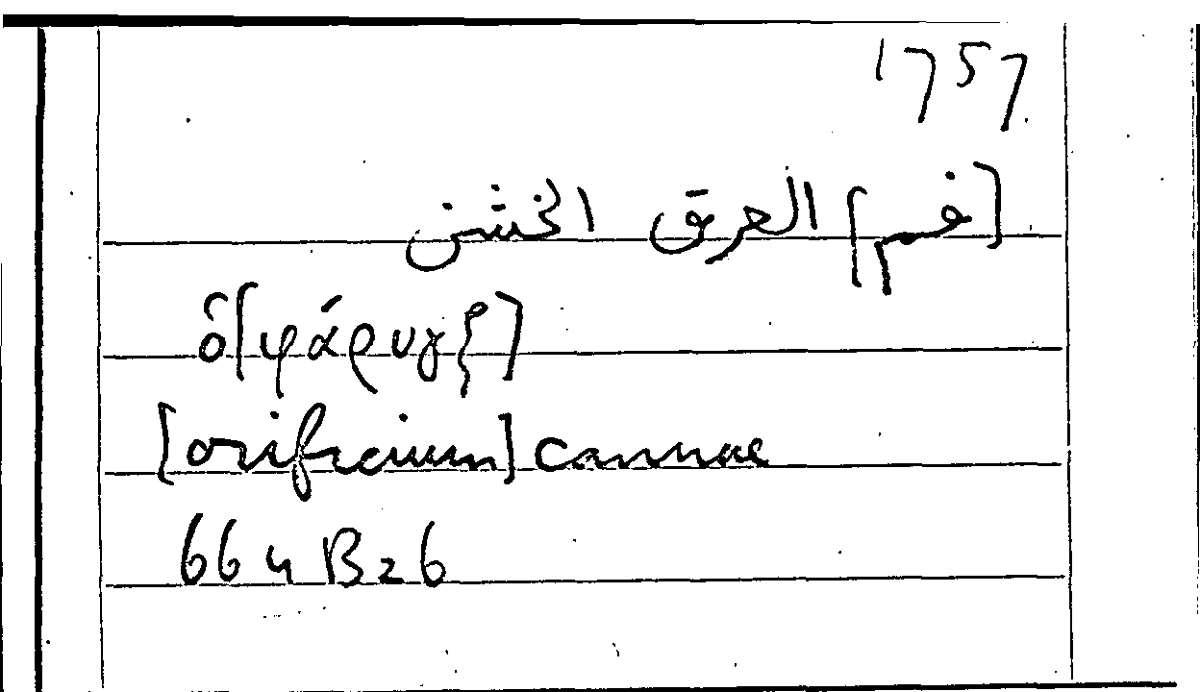 1757
[فم] العرق الخشن
ὁ [φάρυγξ]
[orificium] cannae
664 B26